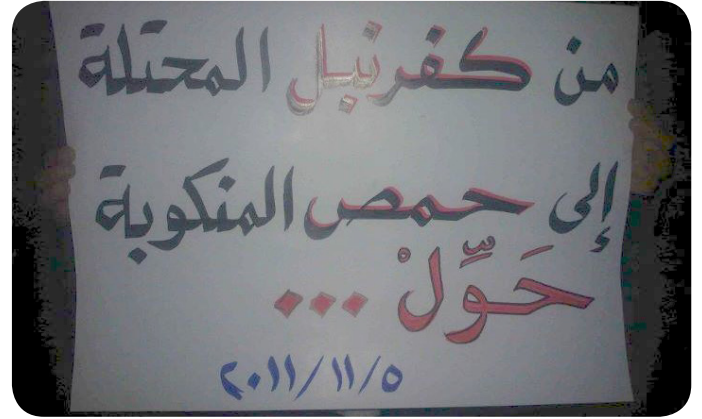 من كفرنبل المحتلة
إلى حمص المنكوبة
حَوِّلْ ...
٢٠١١/١١/٥